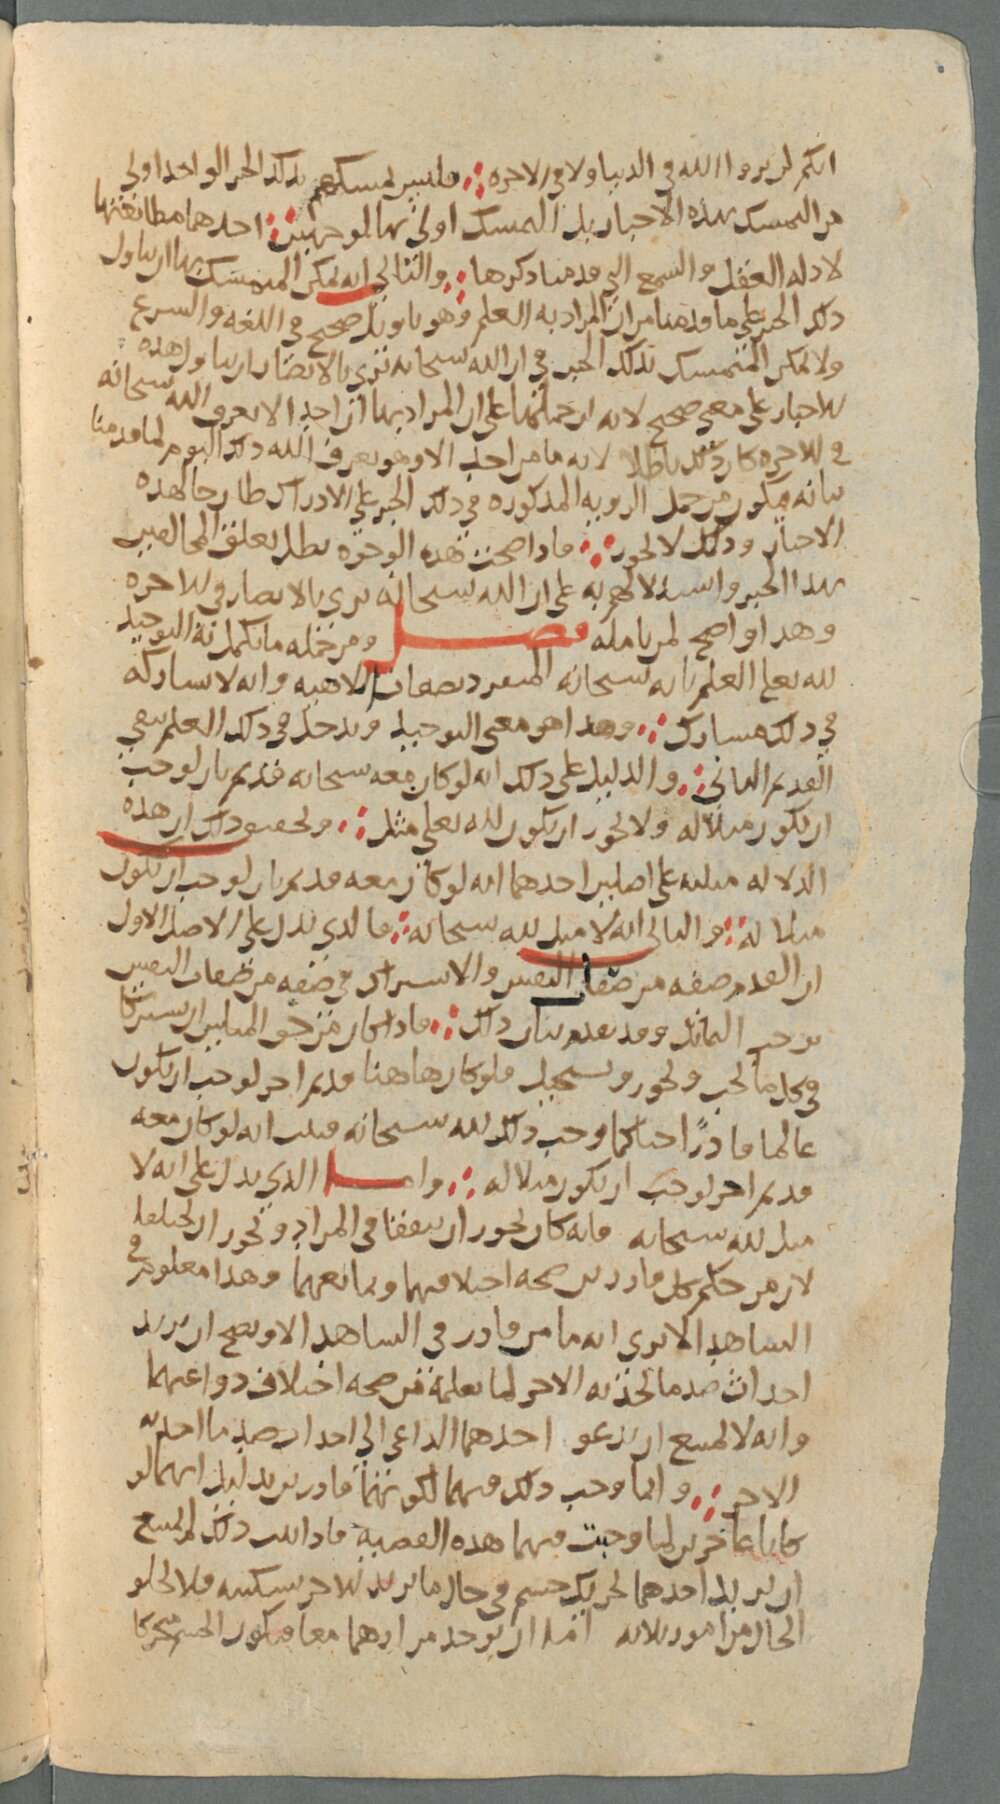 انكم لن تروا الله في الدنيا ولا في الاخره ∴ فليس تمسكهم بذلك الخبر الواحد اولى
من التمسك بهذه الاخبار بل التمسك اولى بها لوجهين ∴ احدهما مطابقتها
لادله العقل والسمع التي قدمنا ذكرها ∴ والثاني انه يمكن المتمسك بها ان يتاول
ذلك الخبر على ما قدمنا من ان المراد به العلم وهو تاويل صحيح في اللغه والشرع
ولا يمكن المتمسك بذلك الخبر في ان الله سبحانه يرى بالابصار ان يتاول هذه
الاخبار على معنى صحيح لانه ان حملها على ان المراد بها ان احدا لا يعرف الله سبحانه
في الاخره كان ذلك باطلا لانه ما من احد الا وهو يعرف الله ذلك اليوم لما قدمنا
بيانه فيكون من حمل الرويه المذكوره في ذلك الخبر على الادراك طارحا لهذه
الاخبار وذلك لا يجوز ∴ فاذا صحت هذه الوجوه بطل تعلق المخالفين
بهذا الخبر واستدلالهم به على ان الله سبحانه يرى بالابصار في الاخره
وهذا واضح لمن تامله فصل ومن جمله ما يكمل به التوحيد
لله تعالى العلم بانه سبحانه المنفرد بصفات الالاهيه وانه لا يشاركه
في ذلك مشارك ∴ وهذا هو معنى التوحيد ويدخل في ذلك العلم بنفي
القديم الثاني ∴ والدليل على ذلك انه لو كان معه سبحانه قديم ثان لوجب
ان يكون مثلا له ولا يجوز ان يكون لله تعالى مثل ∴ وتحقيق ذلك ان هذه
الدلاله مبنيه على اصلين احدهما انه لو كان معه قديم ثان لوجب ان يكون
مثلا له ∴ والثاني انه لا مثل لله سبحانه ∴ فالذي يدل على الاصل الاول
ان القدم صفه من صفات النفس والاشتراك في صفه من صفات النفس
يوجب التماثل وقد تقدم بيان ذلك ∴ فاذا كان من حق المثلين ان يشتركا
في كل ما يجب ويجوز ويستحيل فلو كان هاهنا قديم اخر لوجب ان يكون
عالما قادرًا حيا كما وجب ذلك لله سبحانه فثبت انه لو كان معه
قديم اخر لوجب ان يكون مثلا له ∴ واما الذي يدل على انه لا
مثل لله سبحانه فانه كان يجوز ان يتفقا في المراد ويجوز ان يختلفا
لان من حكم كل قادرين صحه اختلافهما وتمانعهما وهذا معلوم في
الشاهد الا ترى انه ما من قادر في الشاهد الا ويصح ان يريد
احداث ضد ما يحدثه الاخر لما نعلمه من صحه اختلاف دواعيهما
وانه لا يمتنع ان يدعو احدهما الداعي الى احداث ضد ما احدثه
الاخر ∴ وانما وجب ذلك فيهما لكونهما قادرين بدليل انهما لو
كانا عاجزين لما وجبت فيهما هذه القضيه فاذا ثبت ذلك لم يمتنع
ان يريد احدهما تحريك جسم في حال ما يريد الاخر تسكينه فلا تخلو
الحال من امور ثلاثه اما ان يوجد مرادهما معا فيكون الجسم متحركا